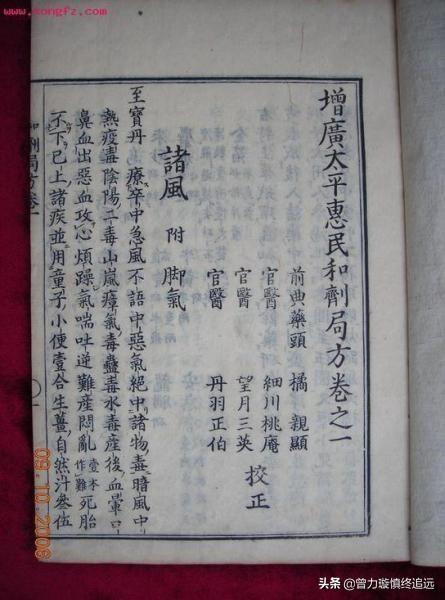 www.kongfz.com
增廣太平惠民和劑局方卷之一
前典藥頭 橘 親顯
官醫 細川桃庵
官醫 望月三英
官醫 丹羽正伯
校正
諸風 附脚氣
至寶丹療卒中急風不語中惡氣絕中諸物毒暗風中
熱疫毒陰陽二毒山嵐瘴氣毒蠱毒水毒産後血暈口
鼻血出惡血攻心煩躁氣喘吐逆難産悶亂壹本作難死胎
不下已上諸疾並用童子小便壹合生薑自然汁叁伍
和劑局方卷一
09.10.2006
头条 @曾力璇慎终追远